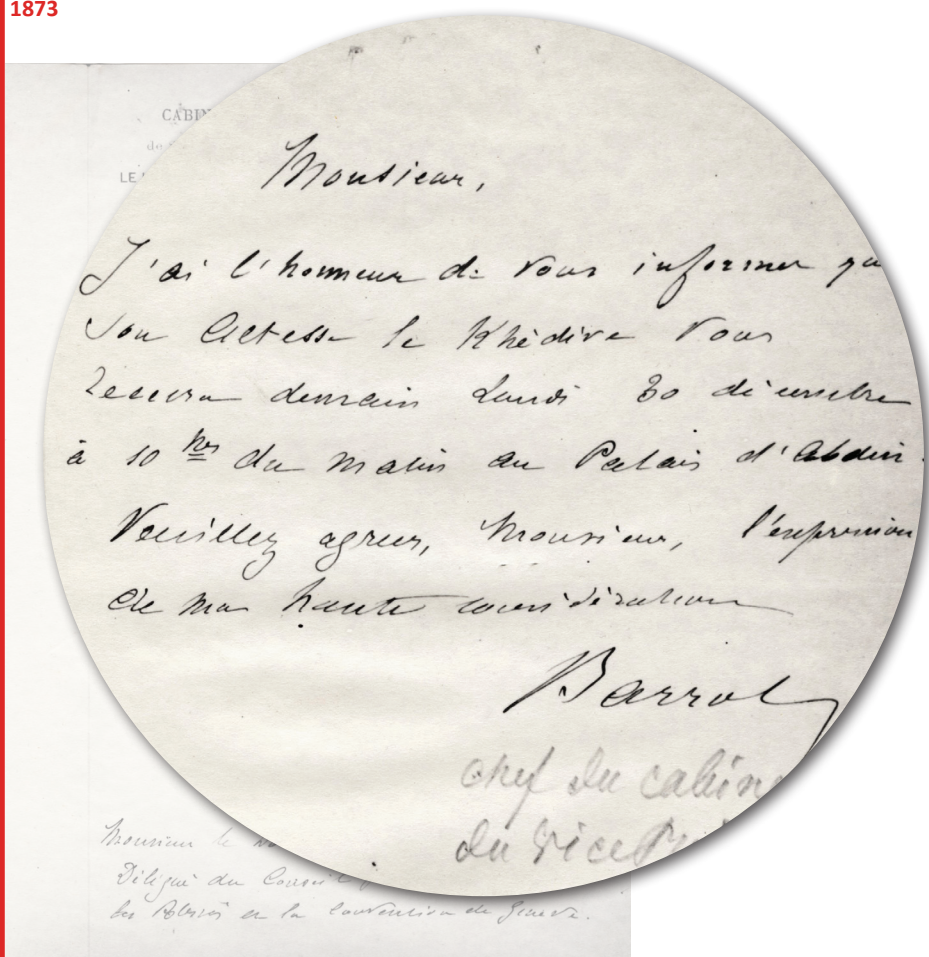 1873
CABIN
du
LE
Monsieur,
J'ai l'honneur de vous informer qu
Son Altesse le Khédive vous
recevra demain Lundi 30 décembre
à 10 hrs du matin au Palais d'Abdin.
Veuillez agréer, Monsieur, l'expression
de ma haute considération
Barrot
chef du cabin
du Vice
Monsieur le
Délégué du Conseil
les Blessés en la Convention de Genève.